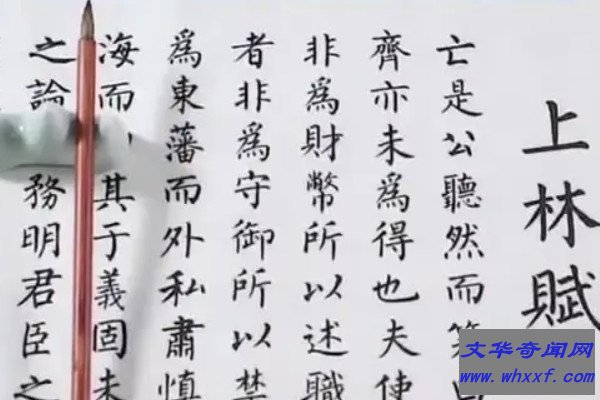 上林賦
亡是公聽然而笑
齊亦未爲得也夫使
非爲財幣所以述職
者非爲守御所以禁
爲東藩而外私肅慎
海而其于義固未
之論務明君臣之
文华奇闻网
www.whxxf.com